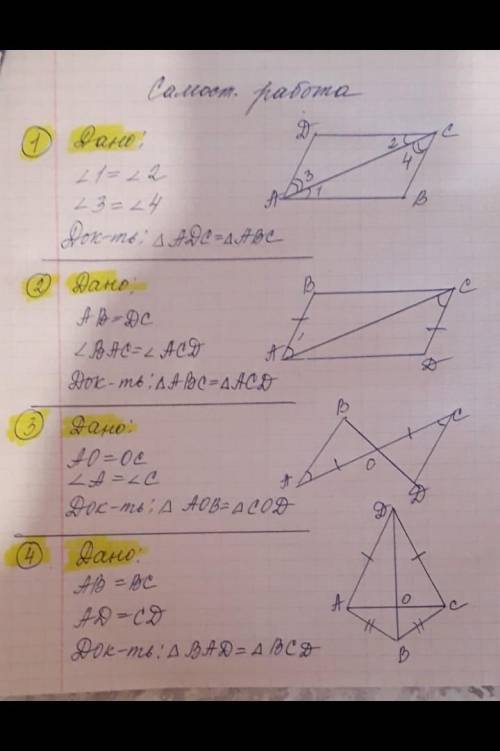 Самост. работа
1 Дано:
∠1 = ∠2
∠3 = ∠4
Док-ть: △ADC = △ABC
D C 2 4 3 1 A B
2 Дано:
AB = DC
∠BAC = ∠ACD
Док-ть: △ABC = △ACD
B C A D
3 Дано:
AO = OC
∠A = ∠C
Док-ть: △ AOB = △COD
B C A O D
4 Дано:
AB = BC
AD = CD
Док-ть: △BAD = △BCD
D A O C B